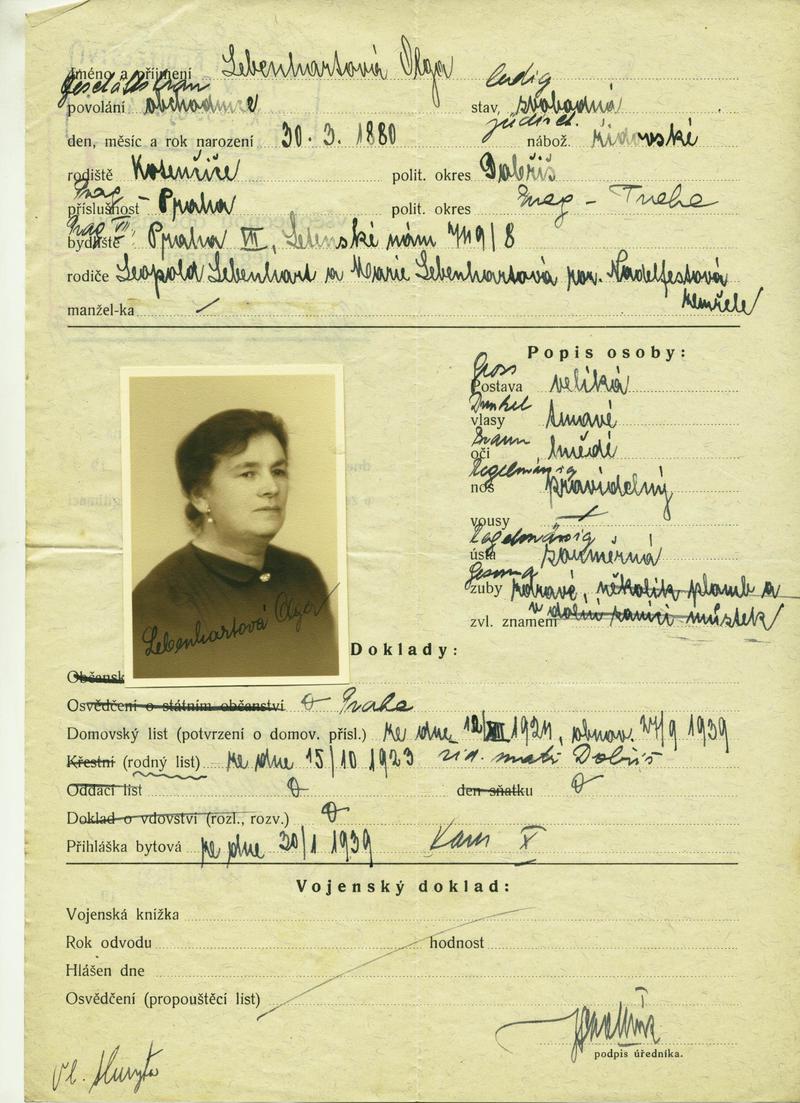 Jméno a příjmení Lebenhartová Olga
Geschäftsfrau ledig
povolání obchodnice stav, svobodná
jüdisch.
den, měsíc a rok narození 30. 3. 1880 nábož. židovské
rodiště Kosenčiře polit. okres Dobříš
Prag
příslušnost Praha polit. okres Prag - Praha
Prag VII
bydliště Praha VII, Letenské nám 749/8
rodiče Leopold Lebenhart a Marie Lebenhartová roz. Nadelfestová
zemřele
manžel-ka
Popis osoby:
Gross
Postava veliká
Dunkel
vlasy tmavé
Braun
oči hnědé
Regelmässig
nos pravidelný
vousy
Regelmässig
ústa souměrná
Gesund
zuby zdravé, několik plomb a
zvl. znamení v dolní sanici můstek
Lebenhartová Olga
Doklady:
Občansk
Osvědčení o státním občanství Praha
Domovský list (potvrzení o domov. přísl.) ze dne 12/XII 1921, obnov. 27/9 1939
Křestní (rodný list) ze dne 15/10 1923 žid. matr Dobříš
Oddací list den sňatku
Doklad o vdovství (rozl., rozv.)
Přihláška bytová ze dne 30/1 1939
Vojenský doklad:
Vojenská knížka
Rok odvodu hodnost
Hlášen dne
Osvědčení (propouštěcí list)
podpis úředníka.